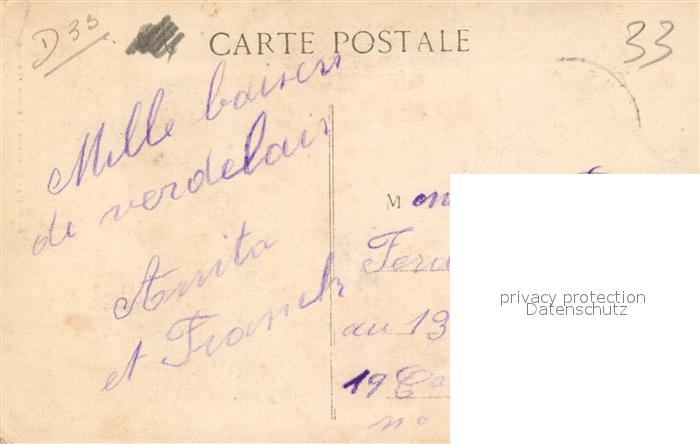 D 33
CARTE POSTALE
33
Mille baisers
de verdelais
Anita
et Franck
M on
Ferd
au 13
19
no
privacy protection
Datenschutz